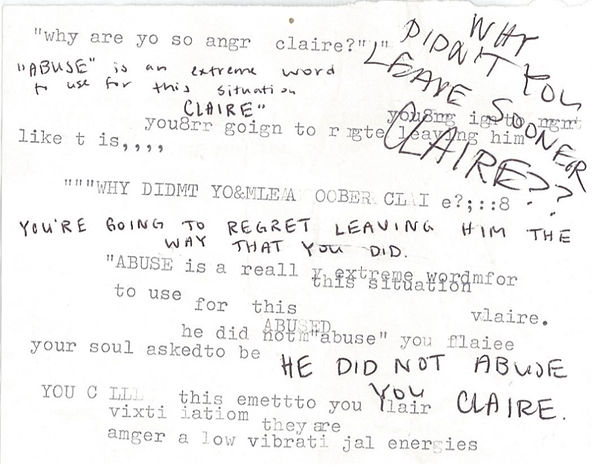 "why are yo so angr claire?" "
"ABUSE" is an extreme word
to use for this situation
CLAIRE"
WHY
DIDN'T YOU
LEAVE SOONER
CLAIRE??
you8rr goign to leaving him
like t is,,,,
"""WHY DIDMT YO&MLEA OOBER CLAI e?;::8
YOU'RE GOING TO REGRET LEAVING HIM THE
WAY THAT YOU DID.
"ABUSE is a reall y extreme wordmfor
this situation
to use for this vlaire.
ABUSED
he did notm"abuse" you flaiee
your soul askedto be
HE DID NOT ABUSE
YOU CLAIRE.
YOU C LLL this emettto you lair
vixti iatiom they are
amger a low vibrati jal energies